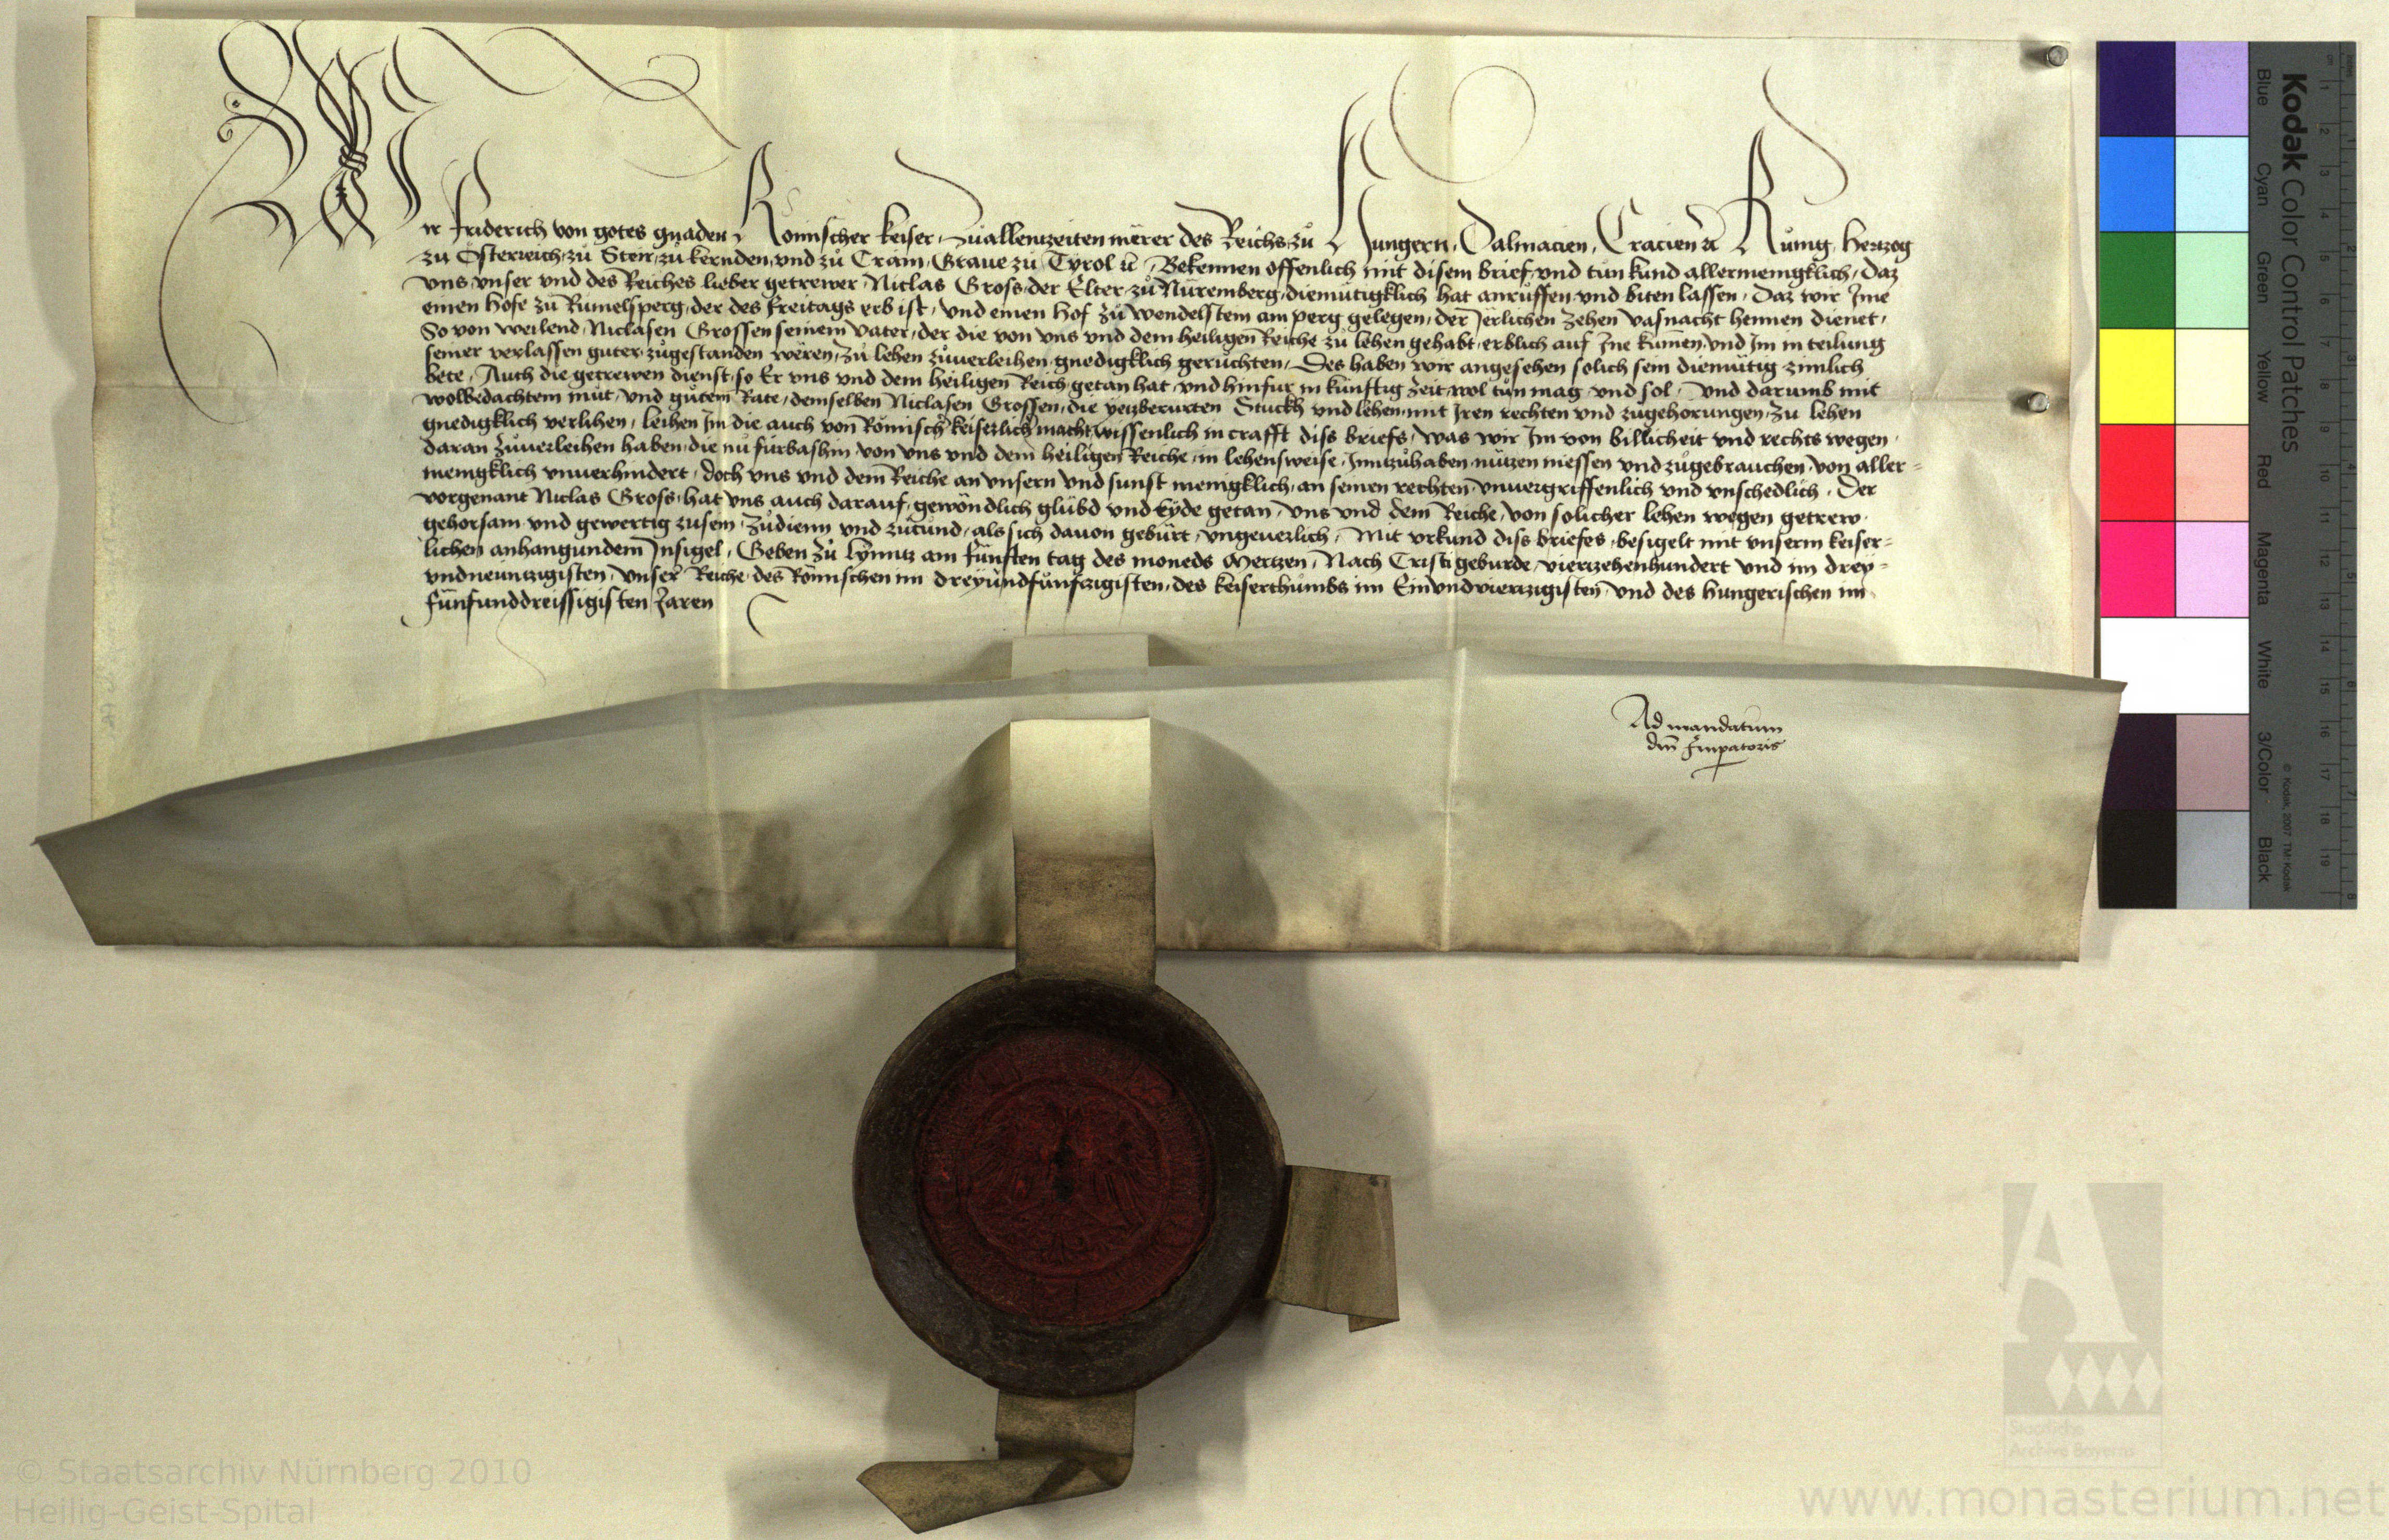 Wir Friderich von gotes gnaden Römischer keiser, zuallenntzeiten mērer des Reichs, zů Hungern, Dalmacien, Cracien ꝛc Kůnig, Hertzog
zu Österreich, zů Steir, zů kernnden, vnd zů Crain, Graue zů Tyrol ꝛc, Bekennen offenlich mit disem brief, vnd tůn kund allermenigklich, Daz
vns vnser vnd des Reiches lieber getrewer Niclas Gross der Elter zů Nůremberg, diemůtigklich hat anrůffen vnd biten lassen, Daz wir Ime
einen Hofe zů Rumelsperg, der des freitags erb ist, vnd einen Hof zů Wendelstein am perg gelegen, der Jerlichen zehen vasnacht hennen dienet,
So von weilend Niclasen Grossen seinem vater, der die von vns vnd dem heiligen Reiche zů lehen gehabt, erblich auf Ine kumen, vnd Im in teilung
seiner verlassen guter, zůgestanden wēren, zů lehen zůuerleihen gnedigklich gerůchten, Des haben wir angesehen solich sein diemütig zimlich
bete, Auch die getrewen dienst, so Er vns vnd dem heiligen Reich getan hat, vnd hinfur in kunftig zeit, wol tůn mag vnd sol, vnd darumb mit
wolbedachtem můt, vnd gůtem Rate, demselben Niclasen Grossen, die yetzberurten Stuckh vnd lehen, mit Iren rechten vnd zugehorungen, zu lehen
gnedigklich verlihen, leihen Im die auch von Römisch keiserlich macht, wissenlich in crafft diss briefs, was wir Im von billicheit vnd rechts wegen
daran zůuerleihen haben, die nů fürbashin, von vns vnd dem heiligen Reiche, in lehensweise, Innzůhaben, nützen niessen vnd zůgebrauchen, von aller=
menigklich vnuerhindert, doch vns vnd dem Reiche an vnsern vnd sunst menigklich, an seinen rechten vnuergriffenlich vnd vnschedlich, Der
vorgenant Niclas Gross, hat vns auch darauf, gewöndlich glübd vnd Eyde getan, vns vnd dem Reiche, von solicher lehen wegen getrew
gehorsam vnd gewertig zusein, zůdienn vnd zůtůnd, als sich dauon gebürt, vngeuerlich, Mit vrkund diss briefes, besigelt mit vnserm keiser=
lichen anhangundem Innsigel, Geben zů Lynntz am fünften tag des moneds Mertzen, Nach Cristi geburde, viertzehenhundert vnd im drey=
vndneuntzigisten, vnser Reiche, des Römischen im dreyůndfůnftzigisten, des keiserthůmbs im Einvndviertzigisten, vnd des hungerischen im
fünfunddreissigisten Jaren
Ad mandatum
dnī Imꝑatoris
Kodak Color Control Patches
Blue
Cyan
Green
Yellow
Red
Magenta
White
3/Color
Black
© Kodak, 2007 TM: Kodak
© Staatsarchiv Nürnberg 2010
Heilig-Geist-Spital
Staatliche
Archive Bayerns
www.monasterium.net